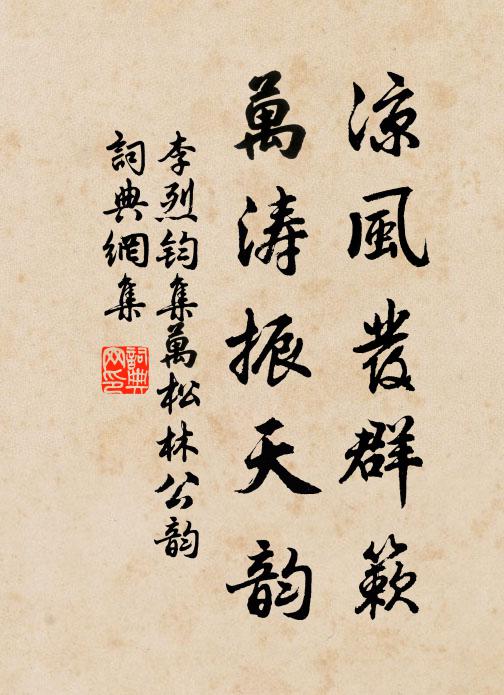 凉風發群籟
萬涛振天韵
李烈钧集萬松林公韵
詞典網集
詞典網印